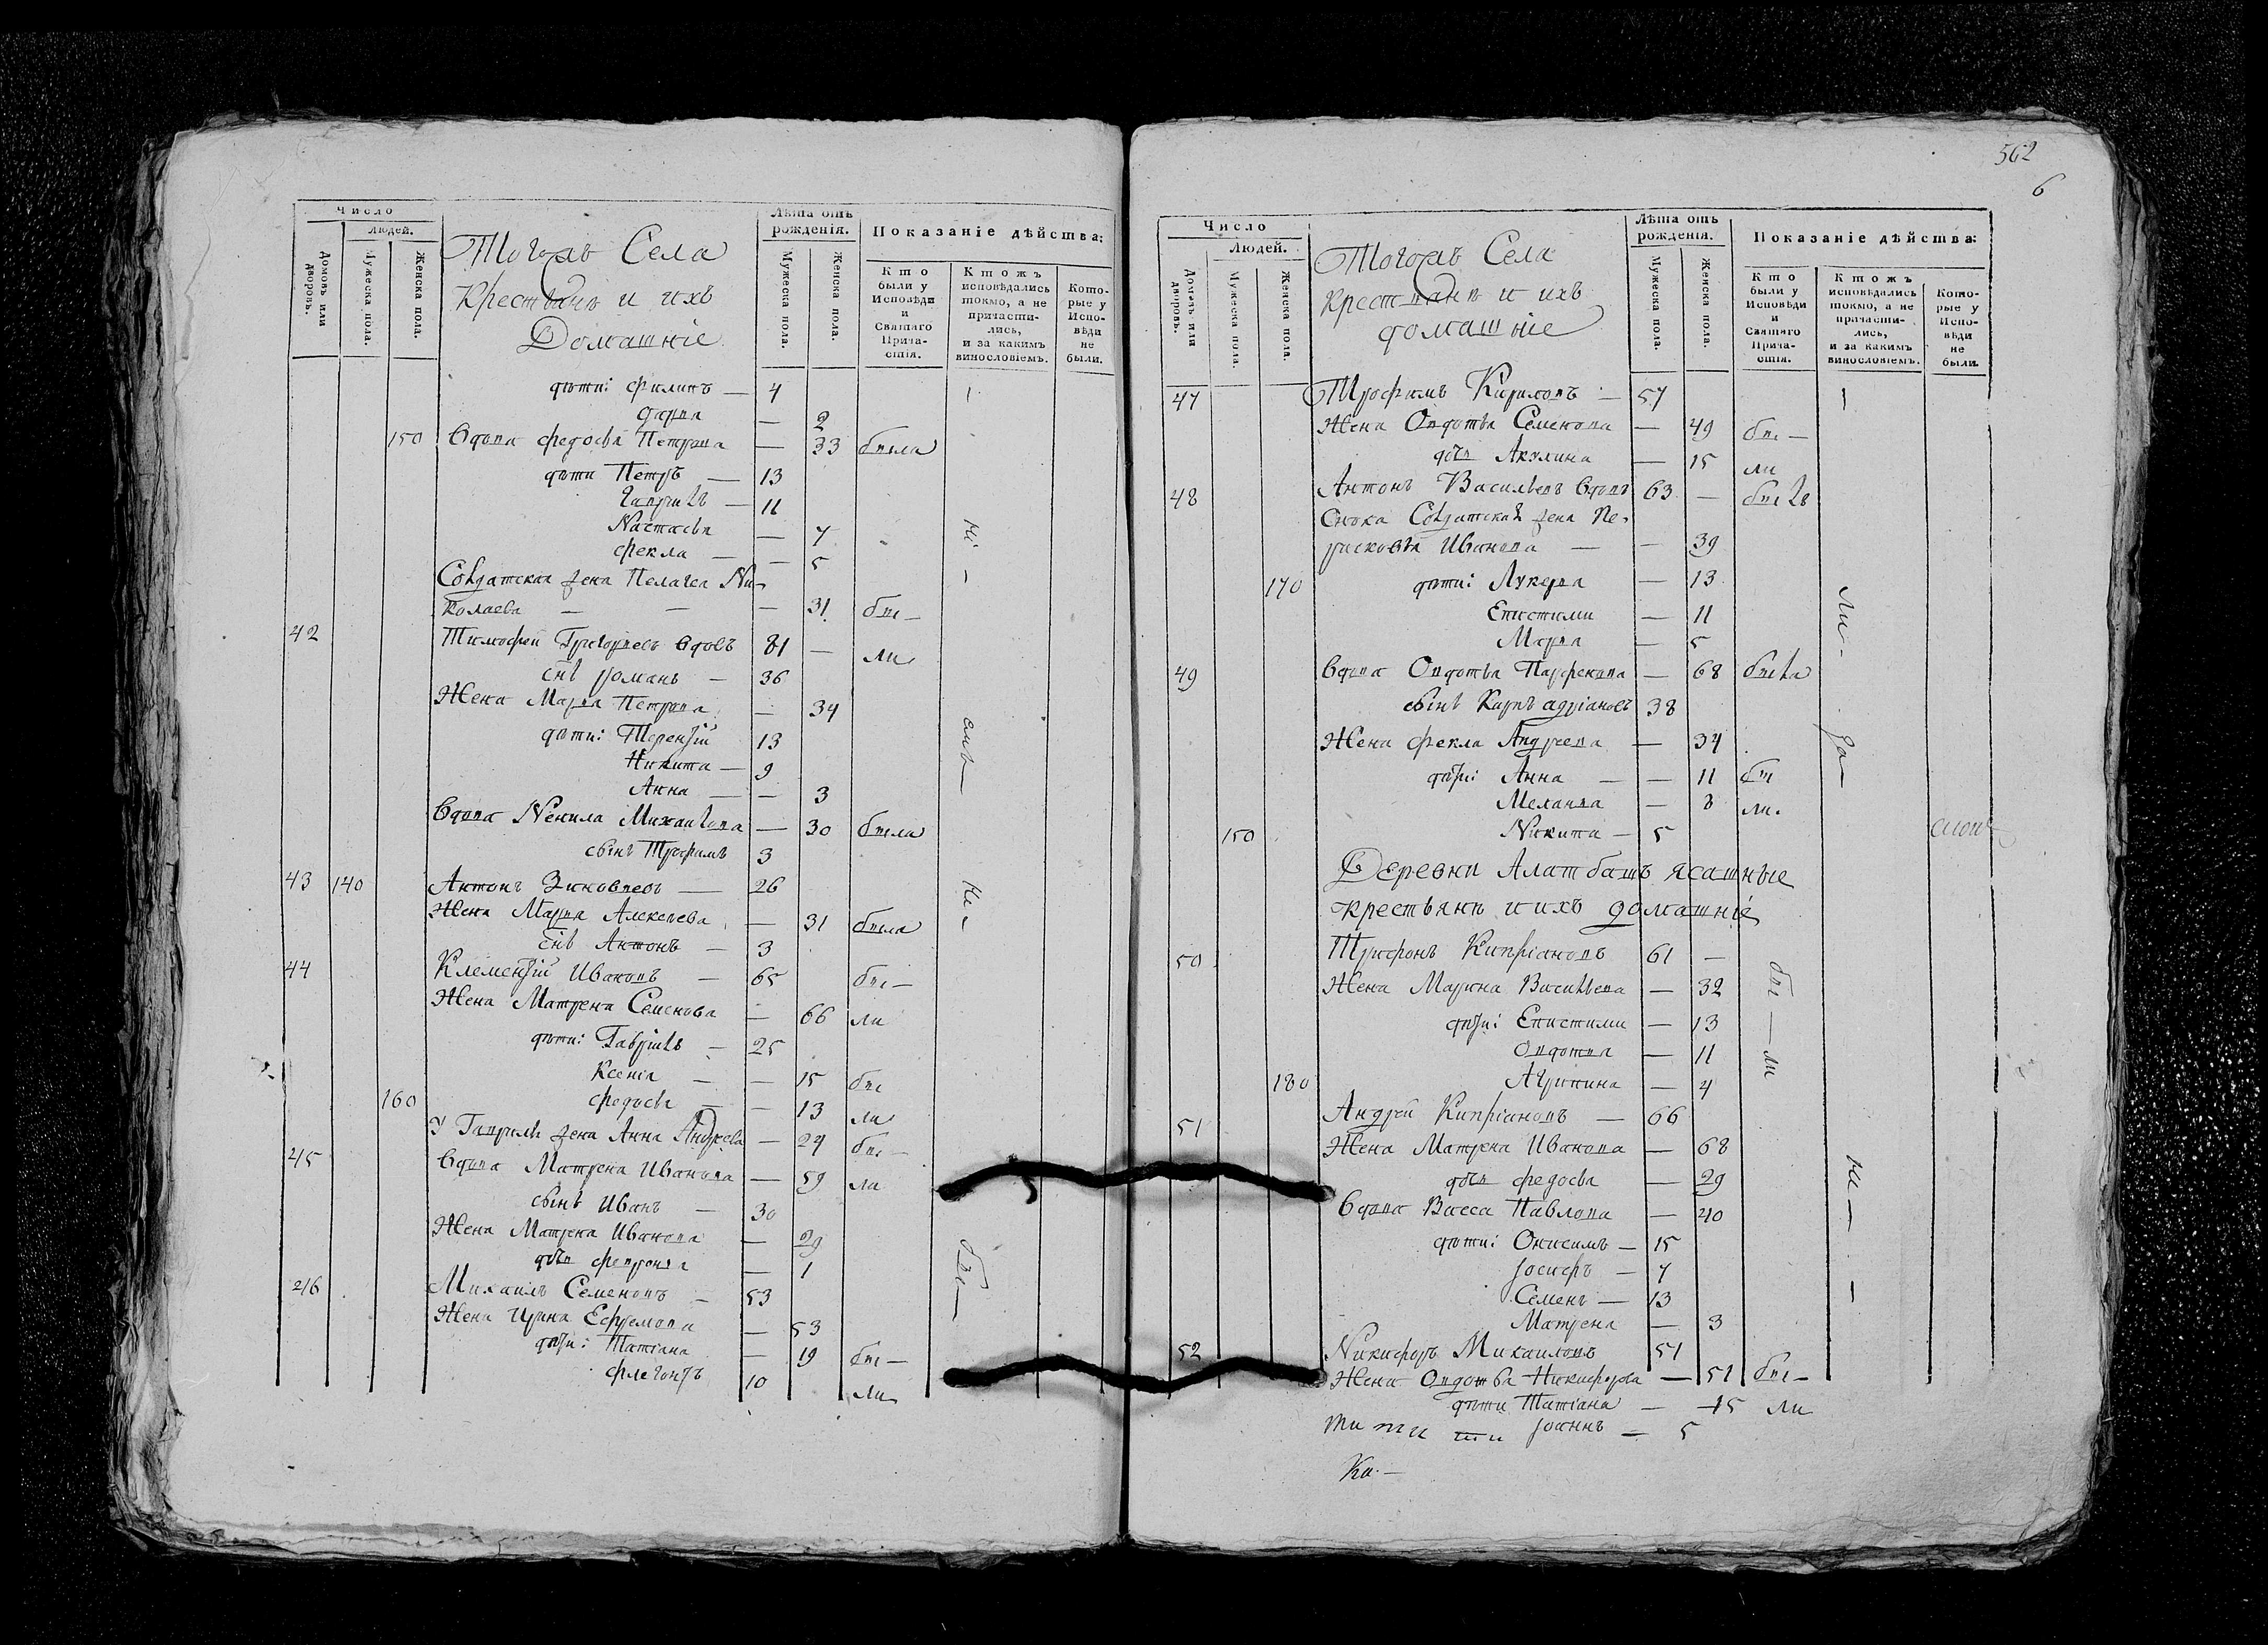 Число
Людей.
Домовъ или дворовъ.
Мужеска пола.
Женска пола.
Тогожъ Села
крестьянъ и ихъ
Домашнiе
Лѣта отъ рожденiя.
Мужеска пола.
Женска пола.
Показанiе дѣйства:
Кто были у Исповѣди и Святаго Прича-стiя.
Ктожъ исповѣдались токмо, а не причасти-лись, и за какимъ винословiемъ.
Кото-рые у Испо-вѣди не были.
дѣти: Филипъ — 4
Дарья — 2
150 Вдова Федосья Петрова — 33 была
дѣти Петръ — 13
Гаврилъ — 11
Настасья — 7
Фекла — 5
Солдатская жена Пелагея Ни-
колаева — — — 31 бы-
42 Тимофей Григорьевъ вдовъ 81 — ли
снъ Романъ — 36
Жена Марья Петрова — 34
дѣти: Терентiй 13
Никита — 9
Анна — — 3
Вдова Ненила Михайлова — 30 была
сынъ Трофимъ 3
43 140 Антонъ Зиновьевъ — 26
Жена Марья Алексеева — 31 была
снъ Антонъ — 3
44 Клементiй Ивановъ — 65 бы-
Жена Матрена Семенова — 66 ли
дѣти: Гаврилъ — 25
Ксенiя — — 15 бы
160 Федосья — — 13 ли
У Гаврилы жена Анна Андреева — 24 бы-
45 Вдова Матрена Иванова — 59 ли
сынъ Иванъ — 30
Жена Матрена Иванова — 29
дочь Февронья — 1
46 Михаилъ Семеновъ — 53
Жена Ирина Ефремова — 53
дѣти: Татiана — 19 бы-
Флегонтъ 10 ли
562
6
Число
Людей.
Домовъ или дворовъ.
Мужеска пола.
Женска пола.
Тогожъ Села
крестьянъ и ихъ
домашнiе
Лѣта отъ рожденiя.
Мужеска пола.
Женска пола.
Показанiе дѣйства:
Кто были у Исповѣди и Святаго Прича-стiя.
Ктожъ исповѣдались токмо, а не причасти-лись, и за какимъ винословiемъ.
Кото-рые у Испо-вѣди не были.
47 Трофимъ Кириловъ — 57
Жена Овдотья Семенова — 49 бы-
дочь Акулина — 15 ли
48 Антонъ Васильевъ вдовъ 63 — былъ
Сноха Солдатская жена Пе-
расковья Иванова — — 39
170 дѣти: Лукерья — 13
Епистими — 11
Марья — 5
49 Вдова Овдотья Парфенова — 68 была
сынъ Карпъ Адрiановъ 38
Жена Фекла Андреева — 34
дѣти: Анна — — 11 бы
Меланья — 8 ли.
150 Никита — 5
Деревни Алатбашъ ясашные
крестьянъ и ихъ домашнiе
50 Трифонъ Кипрiановъ 61 —
Жена Марина Васильева — 32
дѣти: Епистими — 13
Овдотья — 11
180 Агрипина — 4
51 Андрей Кипрiановъ — 66
Жена Матрена Иванова — 68
дочь Федосья — 29
Вдова Васса Павлова — 40
дѣти: Онисимъ — 15
Iосифъ — 7
Семенъ — 13
Матрена — 3
52 Никифоръ Михаиловъ 51
Жена Овдотья Никифорва — 51 бы-
дѣти Татiана — 15 ли
ти ти ти Iоаннъ — 5
Ка. —